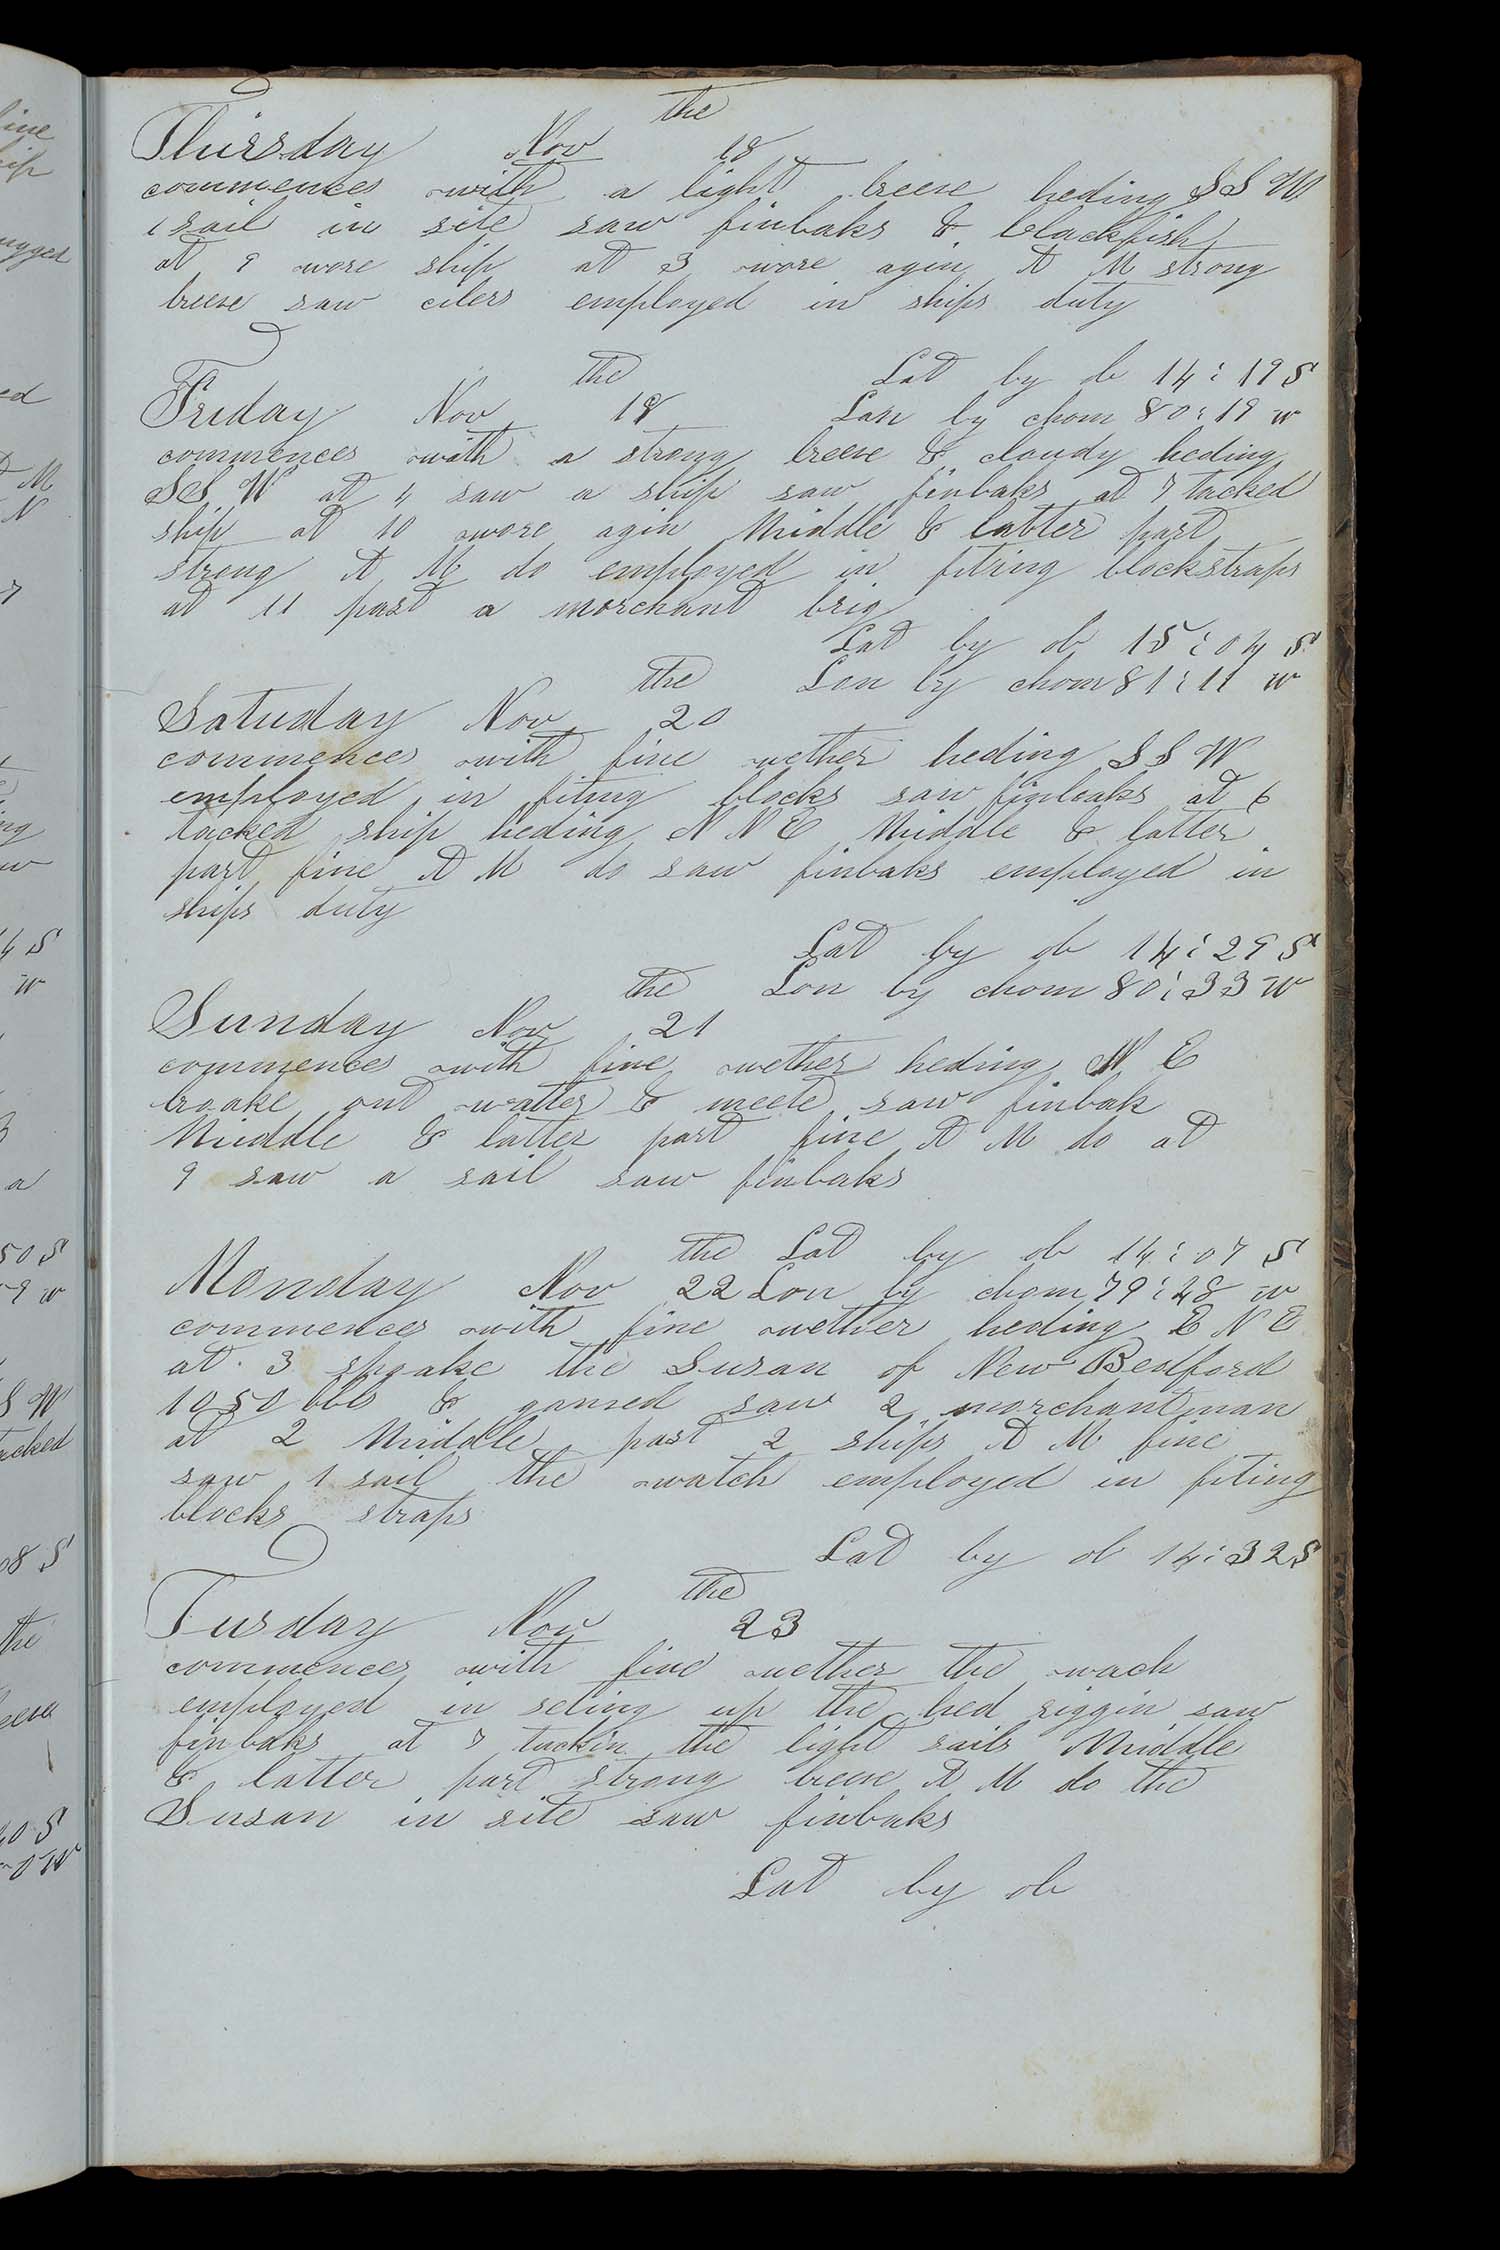 the
Thirsday Nov 18
commences with a light breese heding S S W
1 sail in site saw finbaks & blackfish
at 9 wore ship at 3 wore agin A M strong
breese saw cilers employed in ships duty
the Lat by ob 14:19 S
Friday Nov 19 Lon by chom 80:19 w
commences with a strong breese & cloudy heding
S S W at 4 saw a ship saw finbaks at 7 tacked
ship at 10 wore agin Middle & latter part
strong A M do employed in fiting blockstraps
at 11 past a morchant brig
Lat by ob 15:04 S
the Lon by chom 81:11 w
Satuday Nov 20
commences with fine wether heding S S W
employed in fiting blocks saw finbaks at 6
tacked ship heding N N E Middle & latter
part fine A M do saw finbaks employed in
ships duty
Lat by ob 14:29 S
the Lon by chom 80:33 w
Sunday Nov 21
commences with fine wether heding N E
broake out watter & meete saw finbak
Middle & latter part fine A M do at
9 saw a sail saw finbaks
the Lat by ob 14:07 S
Monday Nov 22 Lon by chom 79:28 w
commences with fine wether heding E N E
at 3 spoake the Susan of New Bedford
1050 bbls & gamed saw 2 morchantman
at 2 Middle past 2 ships A M fine
saw 1 sail the watch employed in fiting
blocks straps
Lat by ob 14:32 S
the
Tusday Nov 23
commences with fine wether the wach
employed in seting up the hed riggin saw
finbaks at 7 tuckin the light sails Middle
& latter part strong breese A M do the
Susan in site saw finbaks
Lat by ob